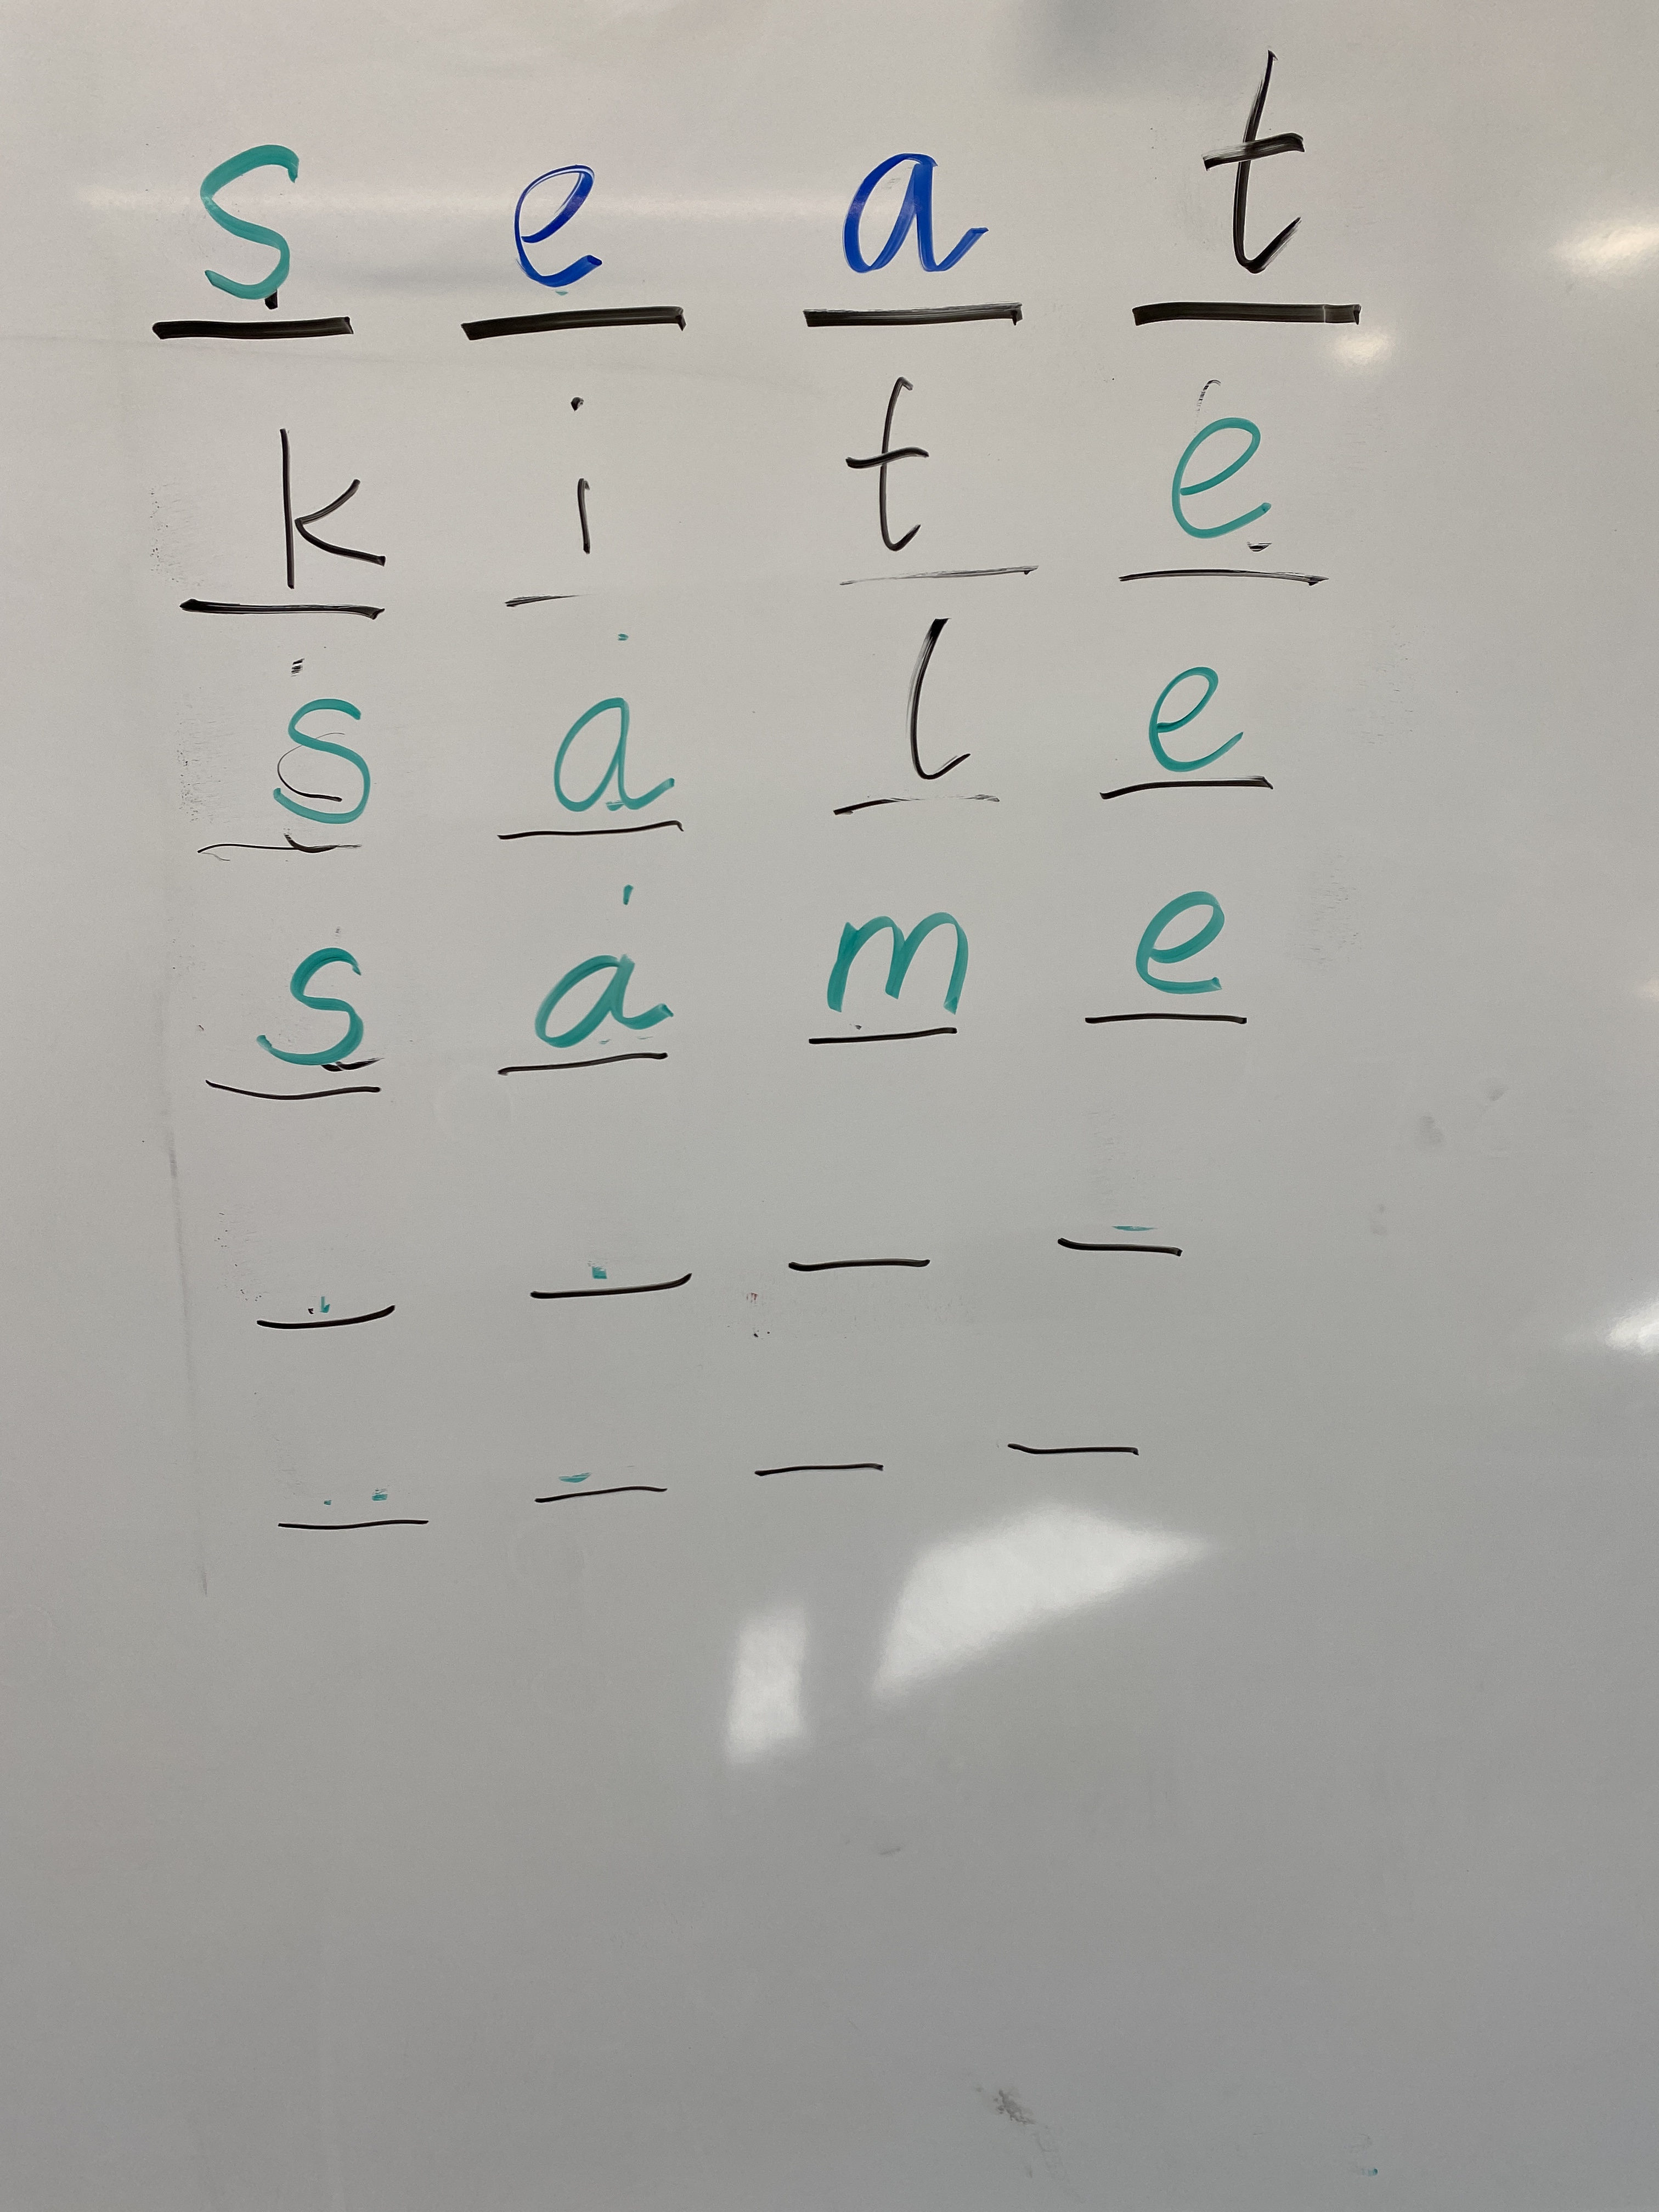 s e a t
k i t e
s a l e
s a m e